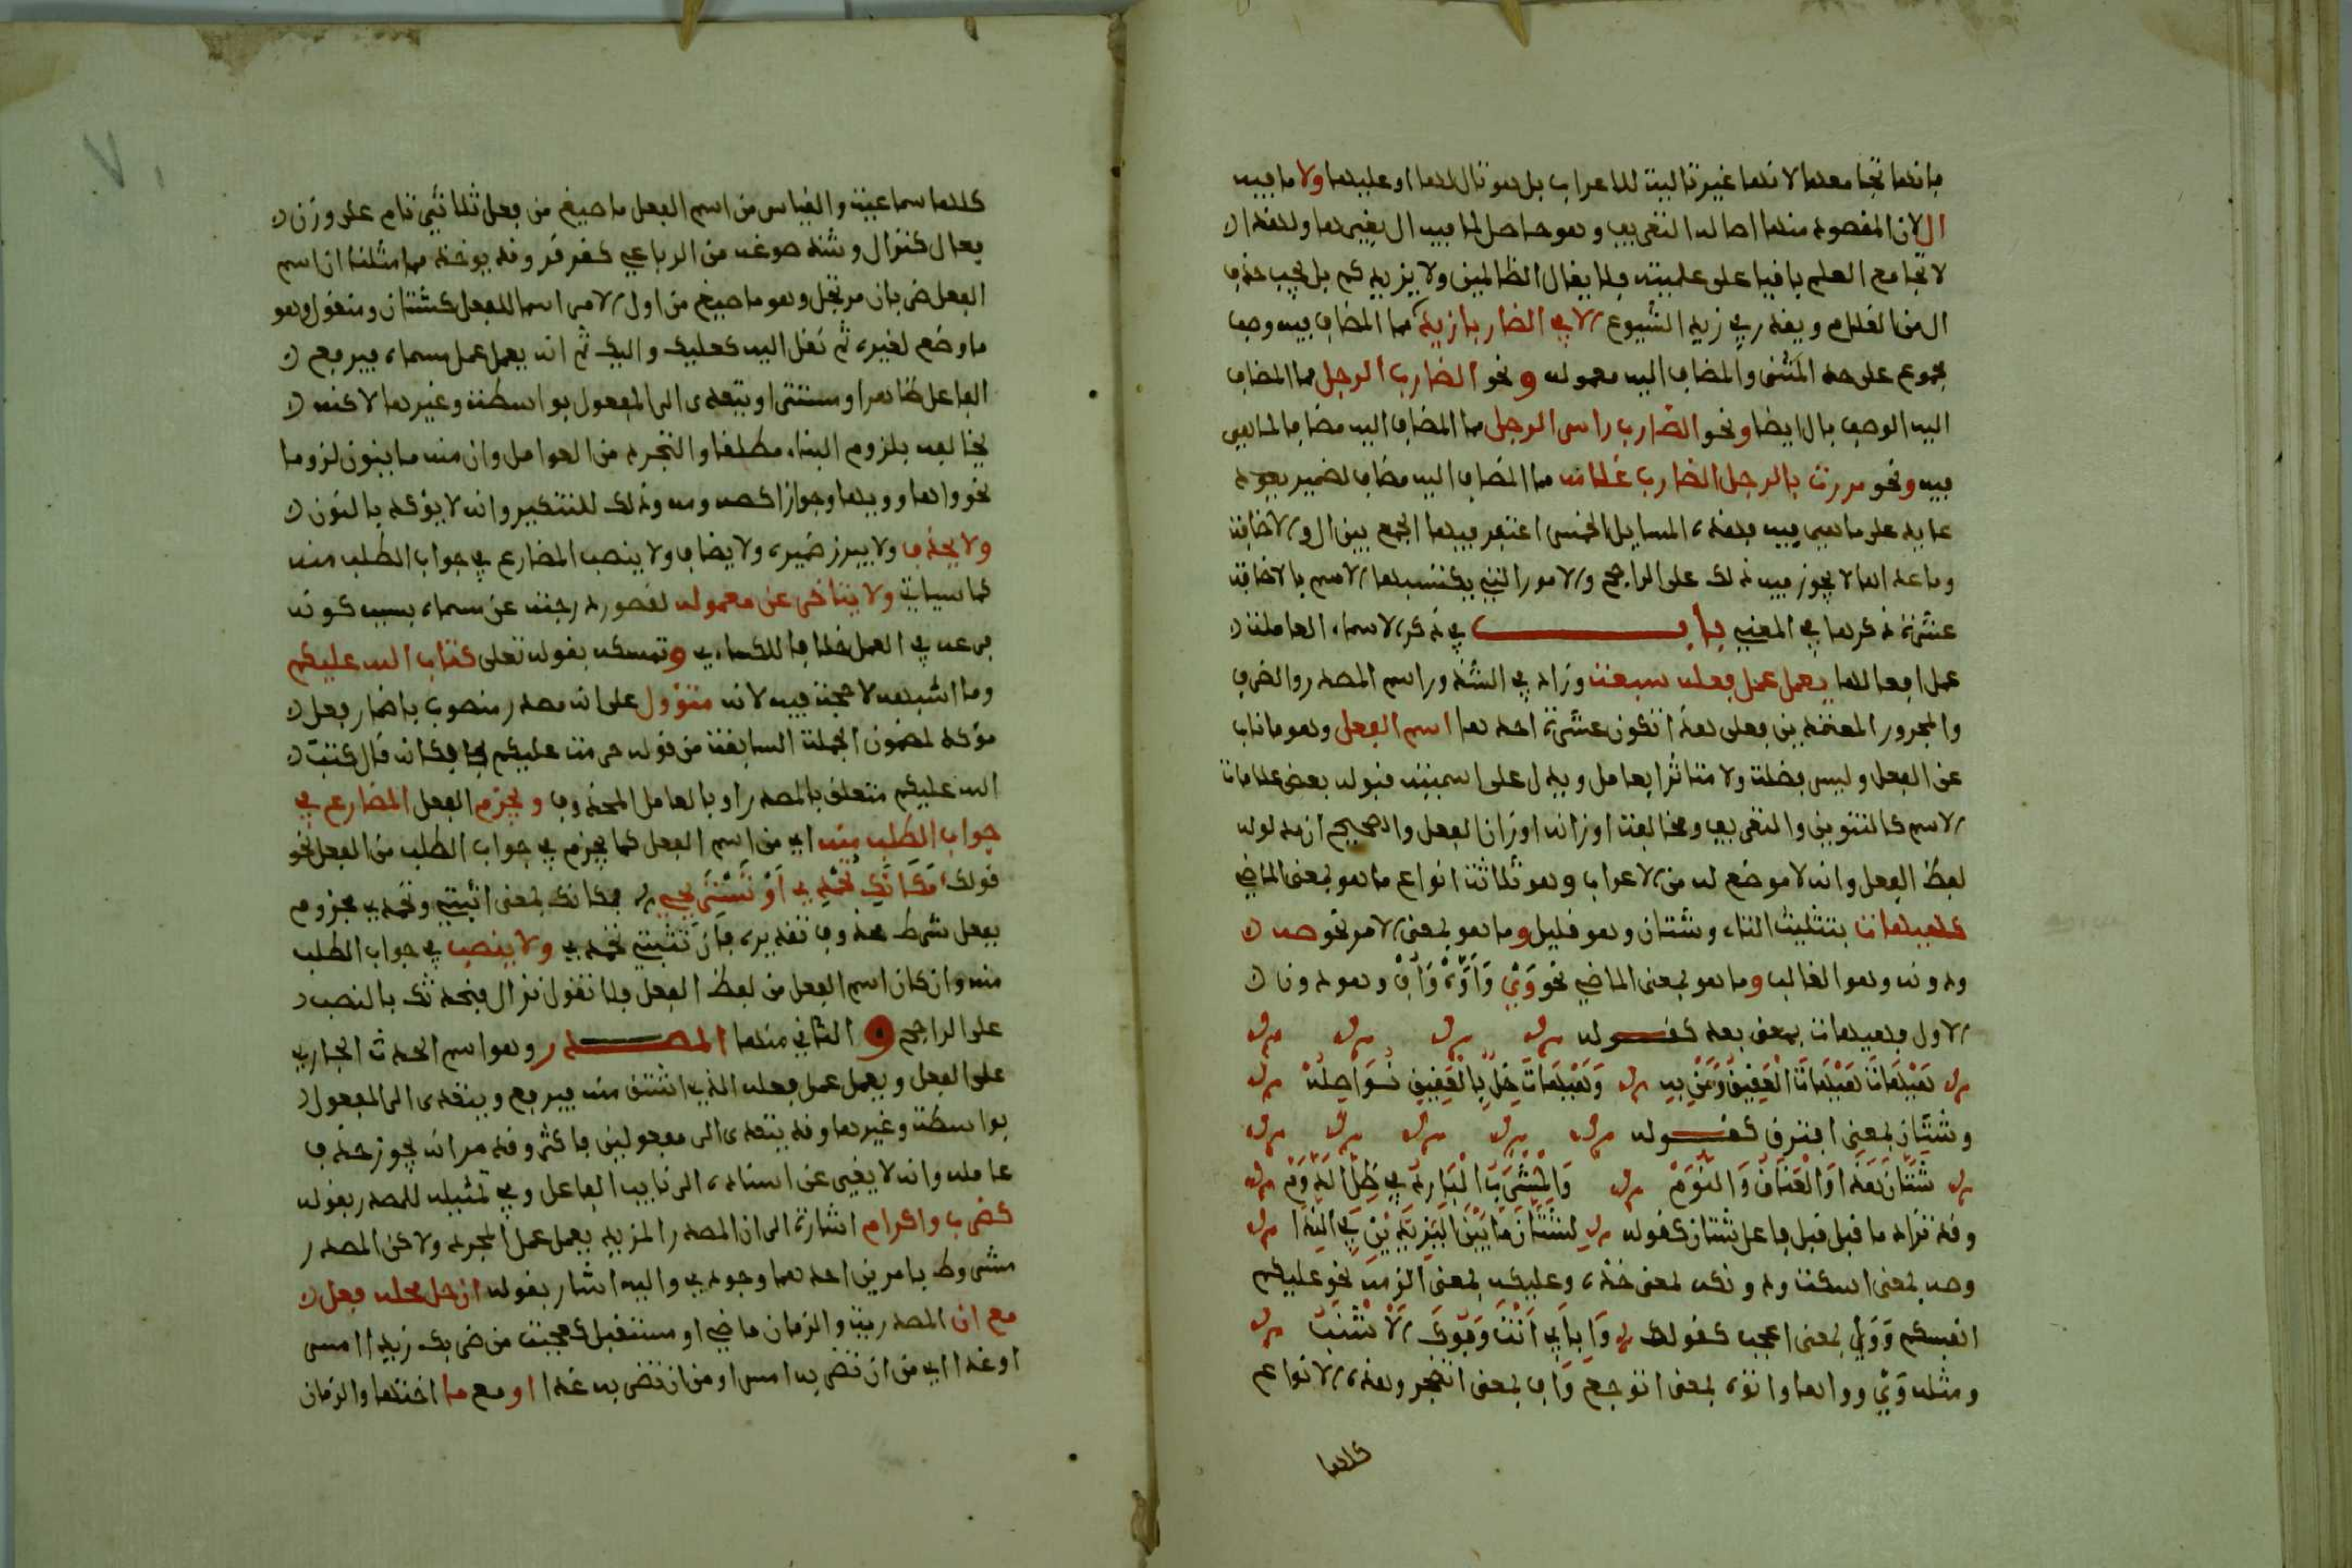 فانها تجامعها لانها غير تالية للاعراب بل هو تال لها او عليها ولا ما فيه
ال لان المقصود منها اصالة التعريف وهو حاصل لما فيه ال بغيرها ولهذا
لا تجامع العلم باقيا على علميته فلا يقال الظالمين ولا يزيدكم بل يجب حذف
ال من الغلام ويقدر في زيد الشيوع الا في الضاربا زيد مما المضاف فيه وصف
مجموع على حد المثنى والمضاف اليه معموله ونحو الضارب الرجل مما المضاف
اليه الوصف بال ايضا ونحو الضارب راس الرجل مما المضاف اليه مضاف لما هي
فيه ونحو مررت بالرجل الضارب غلامه مما المضاف اليه مضاف لضمير يعود
عايد على ما هي فيه فهذه المسايل الخمس اغتفر فيها الجمع بين ال والاضافة
وما عداها لا يجوز فيه ذلك على الراجح والامور التي يكتسبها الاسم بالاضافة
عشرة ذكرها في المغني باب في ذكر الاسماء العاملة
عمل افعالها يعمل عمل فعله سبعة وزاد في الشذور اسم المصدر والظرف
والمجرور المعتمدين فعلى هذا تكون عشرة احدها اسم الفعل وهو ما ناب
عن الفعل وليس فضلة ولا متاثرا بعامل ويدل على اسميته قبوله بعض علامات
الاسم كالتنوين والتعريف ومخالفة اوزانه اوزان الفعل والصحيح ان مدلوله
لفظ الفعل وانه لا موضع له من الاعراب وهو ثلاثة انواع ما هو بمعنى الماضي
كهيهات بتثليث التاء وشتان وهو قليل وما هو بمعنى الامر نحو صه
ودونه وهو الغالب وما هو بمعنى الماضي نحو وَيْ وَأَوَّهْ وَأُفْ وهو دون
الاول فهيهات بمعنى بعد كقوله
هَيْهَاتَ هَيْهَاتَ الْعَقِيقُ وَمَنْ بِهِ وَهَيْهَاتَ خِلٌّ بِالْعَقِيقِ نُوَاصِلُهْ
وشتان بمعنى افترق كقوله
شَتَّانَ هَذَا وَالْعِنَاقُ وَالنَّوْمْ وَالْمَشْرَبُ الْبَارِدُ فِي ظِلِّ الدَّوْمْ
وقد تزاد ما قبل قبل فاعل شتان كقوله لشَتَّانَ مَا بَيْنَ الْيَزِيدَيْنِ فِي النَّدَا
وصه بمعنى اسكت ودونكه بمعنى خذه وعليكه بمعنى الزمه نحو عليكم
انفسكم وَوَيْ بمعنى اعجب كقولك وَا بِأَبِي أَنْتَ وَفُوكِ الْأَشْنَبُ
ومثله وَيْ وواها واوه بمعنى اتوجع وَاف بمعنى اتضجر وهذه الانواع
كلها
كلها سماعية والقياس من اسم الفعل ما صيغ من فعل ثلاثي تام على وزن
فعال كنزال وشذ صوغه من الرباعي كقرقر وقد يوخذ مما مثلنا ان اسم
الفعل ضربان مرتجل وهو ما صيغ من اول الامر اسما للفعل كشتان ومنقول وهو
ما وضع لغيره ثم نقل اليه كعليك واليك ثم انه يعمل عمل مسماه فيرفع
الفاعل ظاهرا ومستترا ويتعدى الى المفعول بواسطة وغيرها لاكنه
يخالفه بلزوم البناء مطلقا والتجرد من العوامل وان منه ما ينون لزوما
نحو واها وويها وجوازا كصه ومه وذلك للتنكير وانه لا يؤكد بالنون
ولا يحذف ولا يبرز ضميره ولا يضاف ولا ينصب المضارع في جواب الطلب منه
كما سياتي ولا يتاخر عن معموله لقصور درجته عن مسماه بسبب كونه
فرعه في العمل خلافا للكساءي وتمسكه بقوله تعلى كتاب الله عليكم
وما اشبهه لا حجة فيه لانه متؤول على انه مصدر منصوب باضمار فعل
مؤكد لمضمون الجملة السابقة من قوله حرمت عليكم فكانه قال كتب
الله عليكم متعلق بالمصدر او بالعامل المحذوف ويجزم الفعل المضارع في
جواب الطلب منه اي من اسم الفعل كما يجزم في جواب الطلب من الفعل نحو
قولك مَكَانَكِ تُحْمَدِي أَوْ تَسْتَرِيحِي فمكانك بمعنى اثبتي وتحمدي مجزوم
بفعل شرط محذوف تقديره فان تثبتي تحمدي ولا ينصب في جواب الطلب
منه وان كان اسم الفعل من لفظ الفعل فلا تقول نزال فنحدثك بالنصب
على الراجح و الثاني منها المصدر وهو اسم الحدث الجاري
على الفعل ويعمل عمل فعله الذي اشتق منه فيرفع ويتعدى الى المفعول
بواسطة وغيرها وقد يتعدى الى مفعولين فاكثر وقد مر انه يجوز حذف
عامله وانه لا يغير عن اسناده الى نايب الفاعل وفي تمثيله للمصدر بقوله
كضرب واكرام اشارة الى ان المصدر المزيد يعمل عمل المجرد ولاكن المصدر
مشروط بامرين احدهما وجودي واليه اشار بقوله ان حل محله فعل
مع ان المصدرية والزمان ماض او مستقبل كعجبت من ضربك زيدا امس
او غدا اي من ان تضربه امس او من ان تضربه غدا او مع ما اختها والزمان